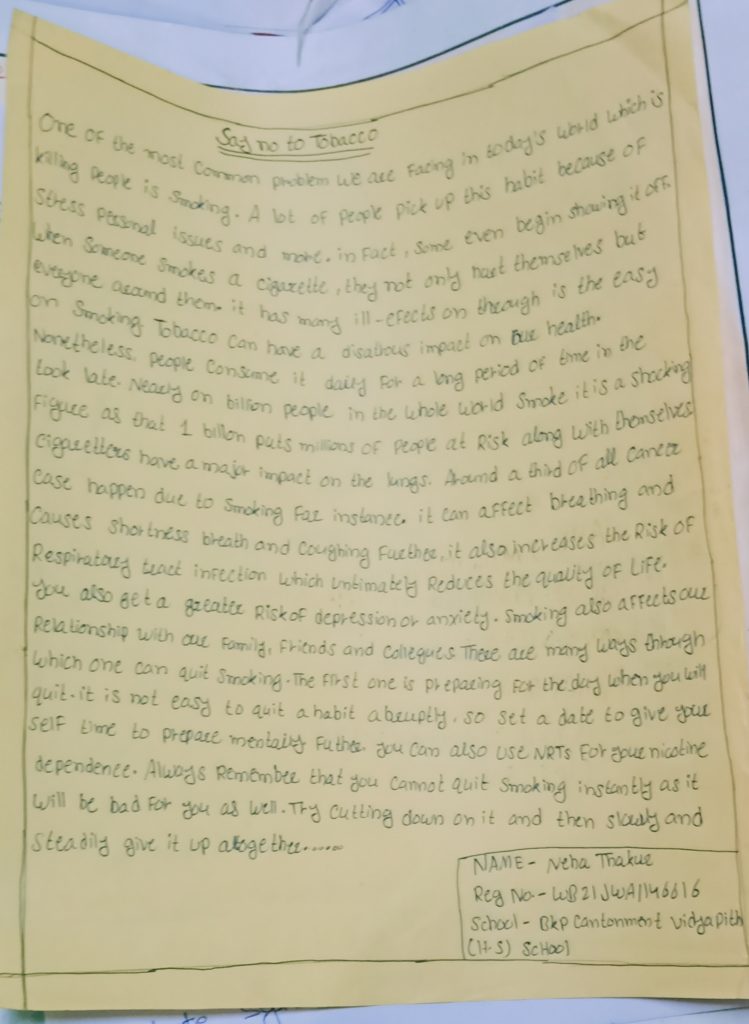 Say no to Tobacco
One of the most Common problem we are Facing in today's world which is
killing People is Smoking. A lot of People Pick up this habit because of
Stress Personal issues and more. in Fact, Some even begin showing it off.
when Someone Smokes a cigarette, they not only hurt themselves but
everyone around them. it has many ill-efects on through is the easy
on Smoking Tobacco Can have a disatrous impact on our health.
Nonetheless, People Consume it daily For a long period of time in the
Look late. Nearly on billion people in the whole world Smoke it is a shocking
Figure as that 1 billon puts millions of People at Risk along with themselves
Cigaretters have a major impact on the lungs. Around a third of all cancer
Case happen due to Smoking For instance. it can affect breathing and
Causes shortness breath and Coughing Further, it also increases the Risk of
Respiratory tract infection which untimately Reduces the quality of Life.
you also get a greater Risk of depression or anxiety. Smoking also affects our
Relationship with our Family, Friends and Collegues There are many ways through
which one can quit Smoking. The First one is preparing For the day when you will
quit. it is not easy to quit a habit abruptly, so set a date to give your
self time to prepare mentally Futher. you Can also use NRTs For your nicotine
dependence. Always Remember that you cannot quit Smoking instantly as it
will be bad For you as well. Try cutting down on it and then slowly and
Steadily give it up altogether......
NAME - Neha Thakur
Reg No - WB21JWA1146616
School - Bkp Cantonment Vidyapith
(H-S) SCHOOl